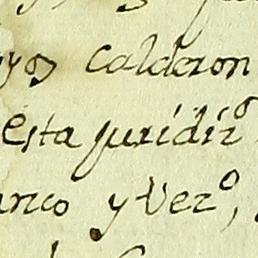 yos calderon
esta juridiz.º
anco y Vez.º,